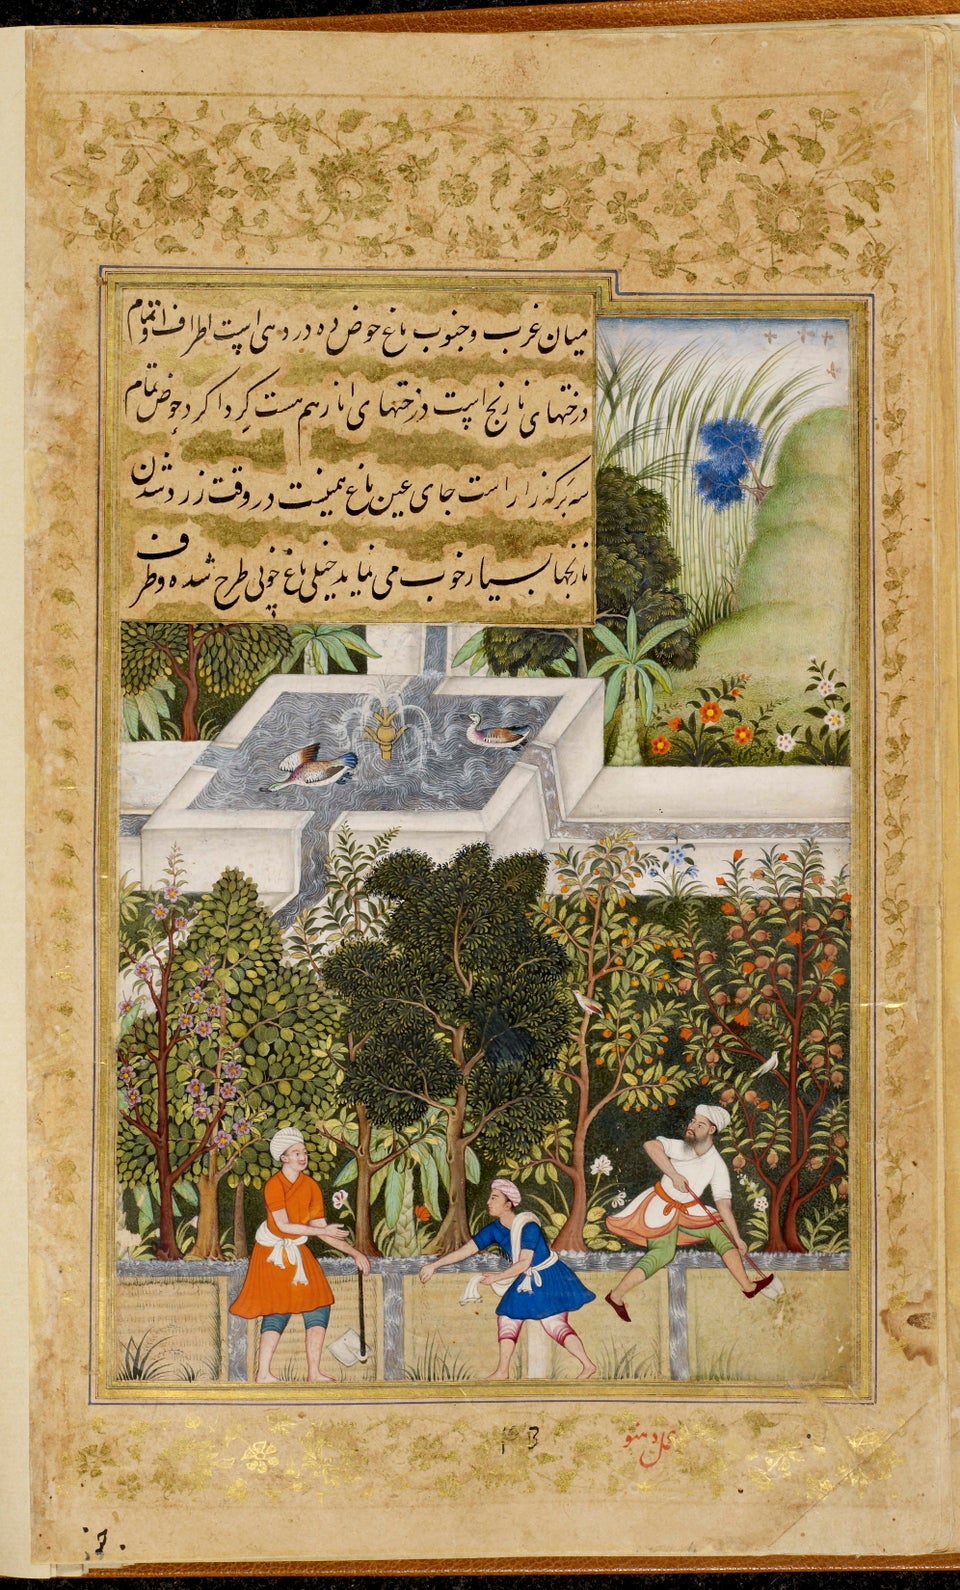 میان غرب و جنوب باغ حوض ده در دهی است اطراف او تمام
درختهای نارنج است درختهای انار هم هست گرداگرد حوض تمام
سه برکه زار است جای عین باغ همینست در وقت زرد شدن
نارنجها بسیار خوب می نماید خیلی باغ خوبی طرح شده و طرف
عمل دهنو